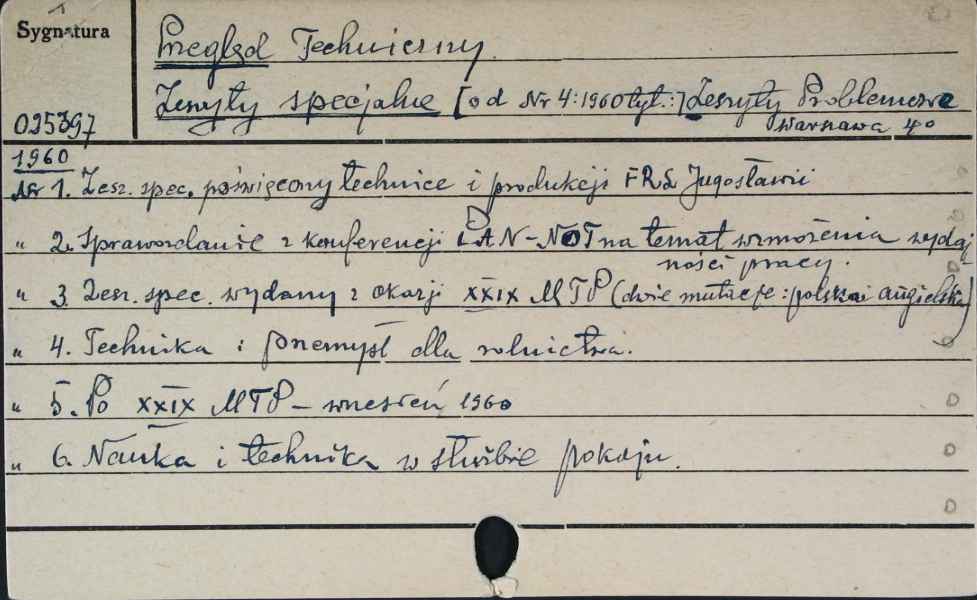 Sygnatura
Przegląd Techniczny.
Zeszyty specjalne [od Nr 4:1960 tyt.:] Zeszyty Problemowe
Warszawa 40
025397
1960
Nr 1. Zesz. spec. poświęcony technice i produkcji FRL Jugosławii
" 2. Sprawozdanie z konferencji PAN-NOT na temat wzmożenia wydaj-
ności pracy.
" 3. Zesz. spec. wydany z okazji XXIX MTP (dwie mutacje: polska i angielska)
" 4. Technika i przemysł dla rolnictwa.
" 5. Po XXIX MTP – wrzesień 1960
" 6. Nauka i technika w służbie pokoju.